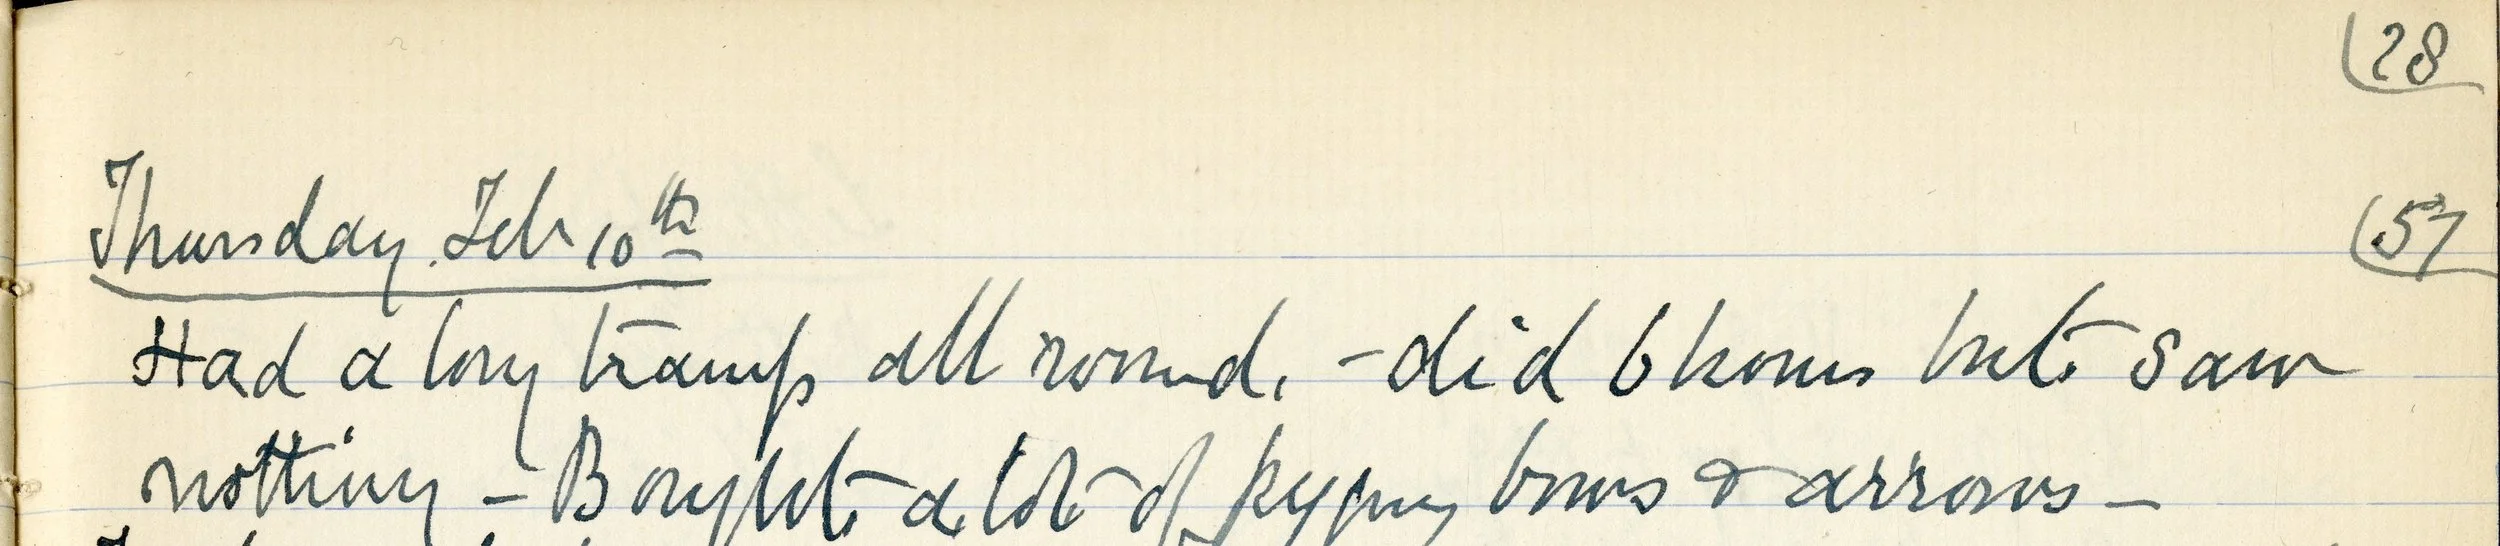 28
Thursday. Feb 10th
57
Had a long tramp all round. - did 6 hours but saw
nothing - Bought a lot of pygmy bows & arrows -